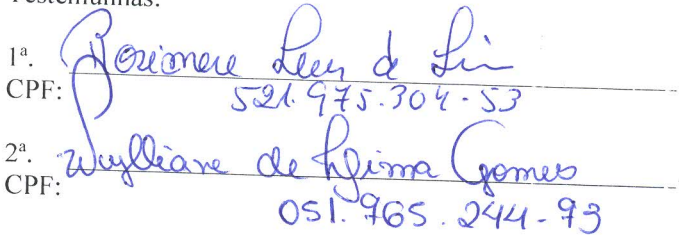 Testemunhas:
1ª. Rosimere de
CPF: 521.975.304-53
2ª. Wylliane de Lima Gomes
CPF: 051.965.244-93